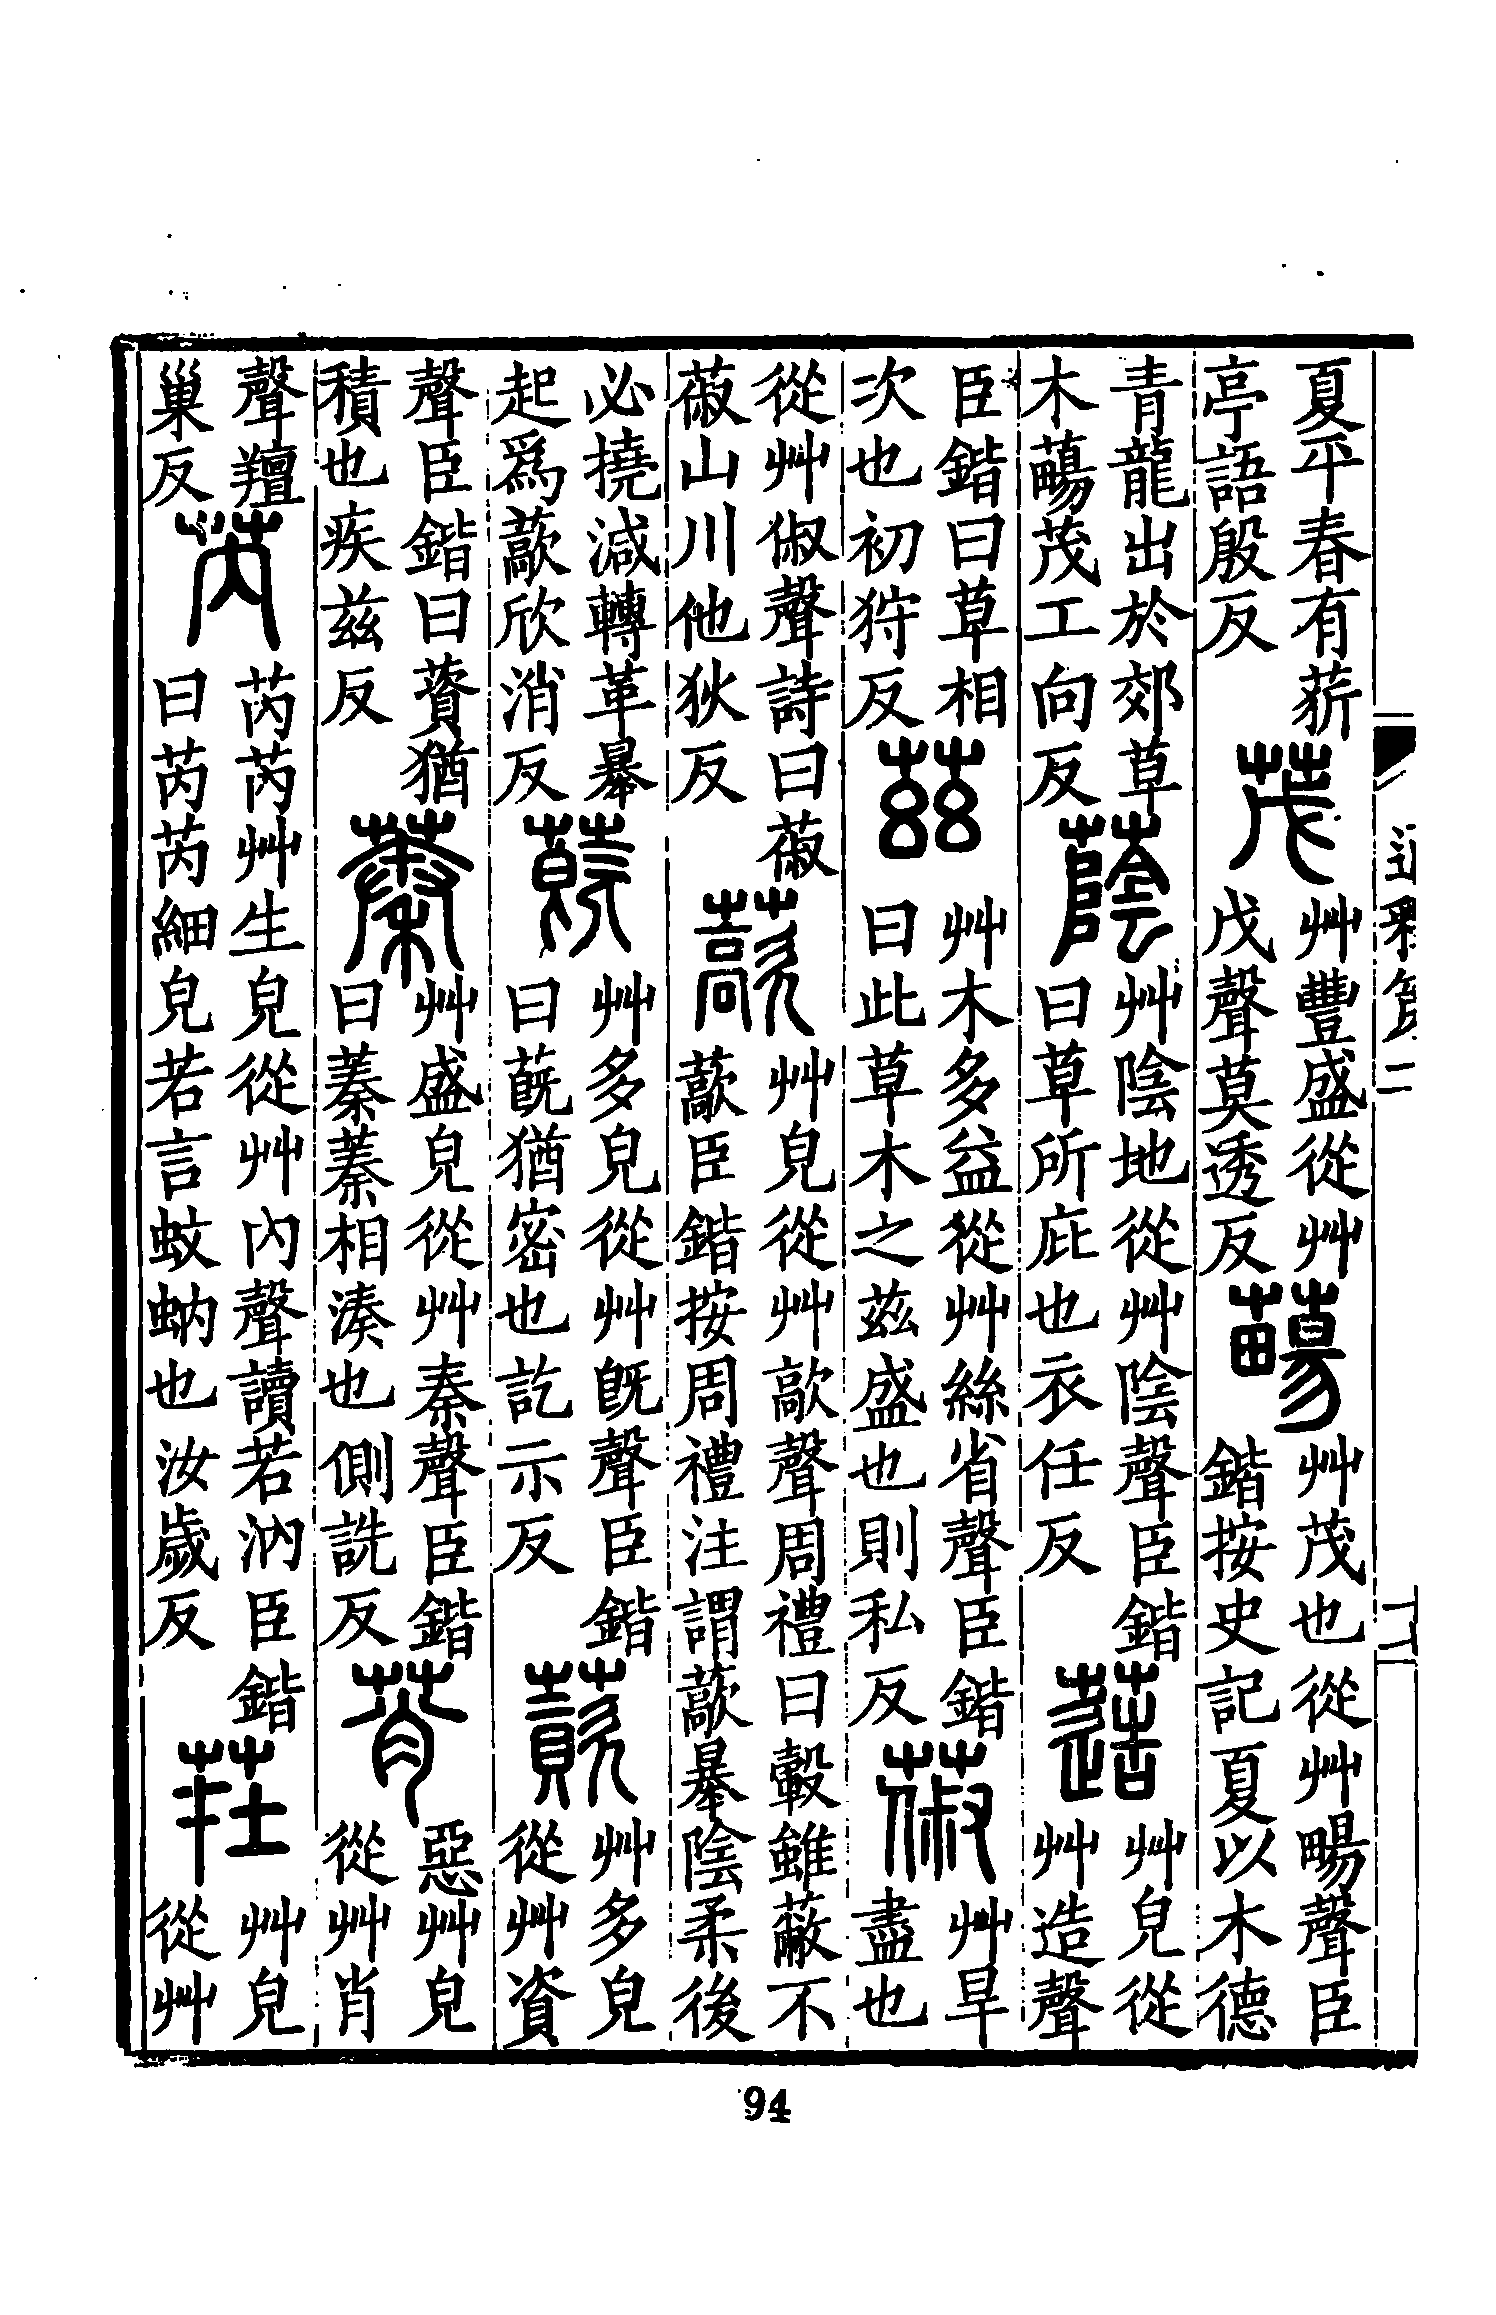 夏平春有菥
亭語殷反
茂
艸豐盛從艸
戊聲莫透反
艸茂也從艸畼聲臣
鍇按史記夏以木德
青龍出於郊草
木茂工向反
蔭
艸陰地從艸陰聲臣鍇
曰草所庇也衣任反
䔏
艸皃從
艸造聲
臣鍇曰草相
次也初狩反
茲
艸木多益從艸絲省聲臣鍇
曰此草木之茲盛也則私反
蔋
艸旱
盡也
從艸俶聲詩曰蔋
蔋山川他狄反
藃
艸皃從艸歊聲周禮曰轂雖蔽不
藃臣鍇按周禮注謂藃暴陰柔後
必撓減轉革暴
起爲藃欣消反
蔇
艸多皃從艸旣聲臣鍇
曰蔇猶密也訖示反
薋
艸多皃
從艸資
聲臣鍇曰薋猶
積也疾茲反
蓁
艸盛皃從艸秦聲臣鍇
曰蓁蓁相湊也側詵反
莦
惡艸皃
從艸肖
聲羶
巢反
芮
芮芮艸生皃從艸內聲讀若汭臣鍇
曰芮芮細皃若言蚊蚋也汝歲反
茌
艸皃
從艸
通釋第二
94